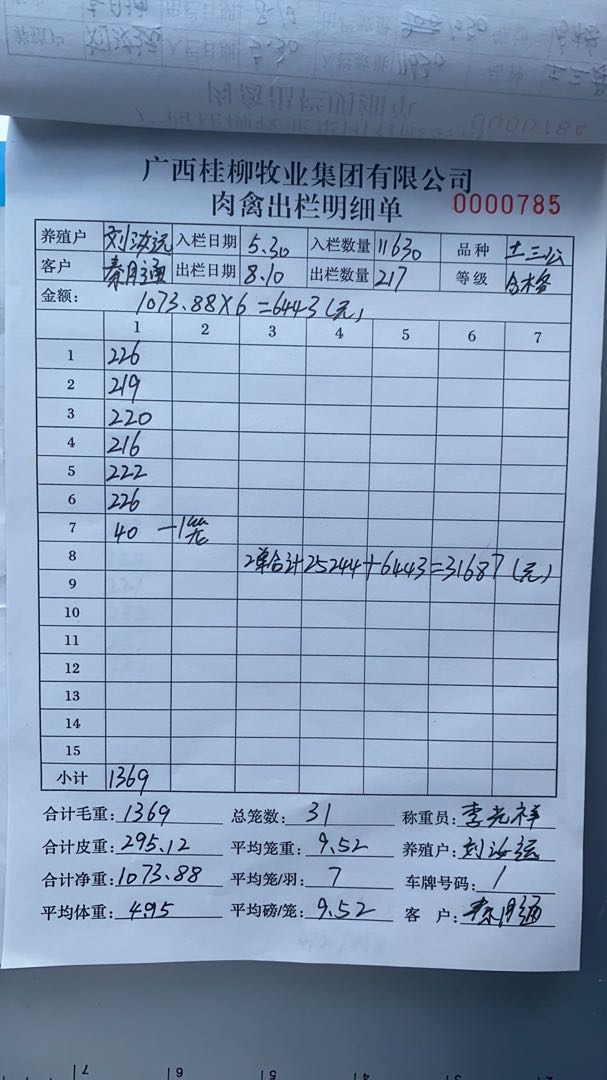 广西桂柳牧业集团有限公司
肉禽出栏明细单 0000785
养殖户 刘汝远 入栏日期 5.30 入栏数量 11630 品种 土三公
客户 秦月通 出栏日期 8.10 出栏数量 217 等级 合格
金额: 1073.88×6=6443(元)
1 2 3 4 5 6 7
1 226
2 219
3 220
4 216
5 222
6 226
7 40 一1笼
8 2单合计25244+6443=31687(元)
9
10
11
12
13
14
15
小计 1369
合计毛重: 1369 总笼数: 31 称重员: 李光祥
合计皮重: 295.12 平均笼重: 9.52 养殖户: 刘汝远
合计净重: 1073.88 平均笼/羽: 7 车牌号码: /
平均体重: 4.95 平均磅/笼: 9.52 客 户: 秦月通